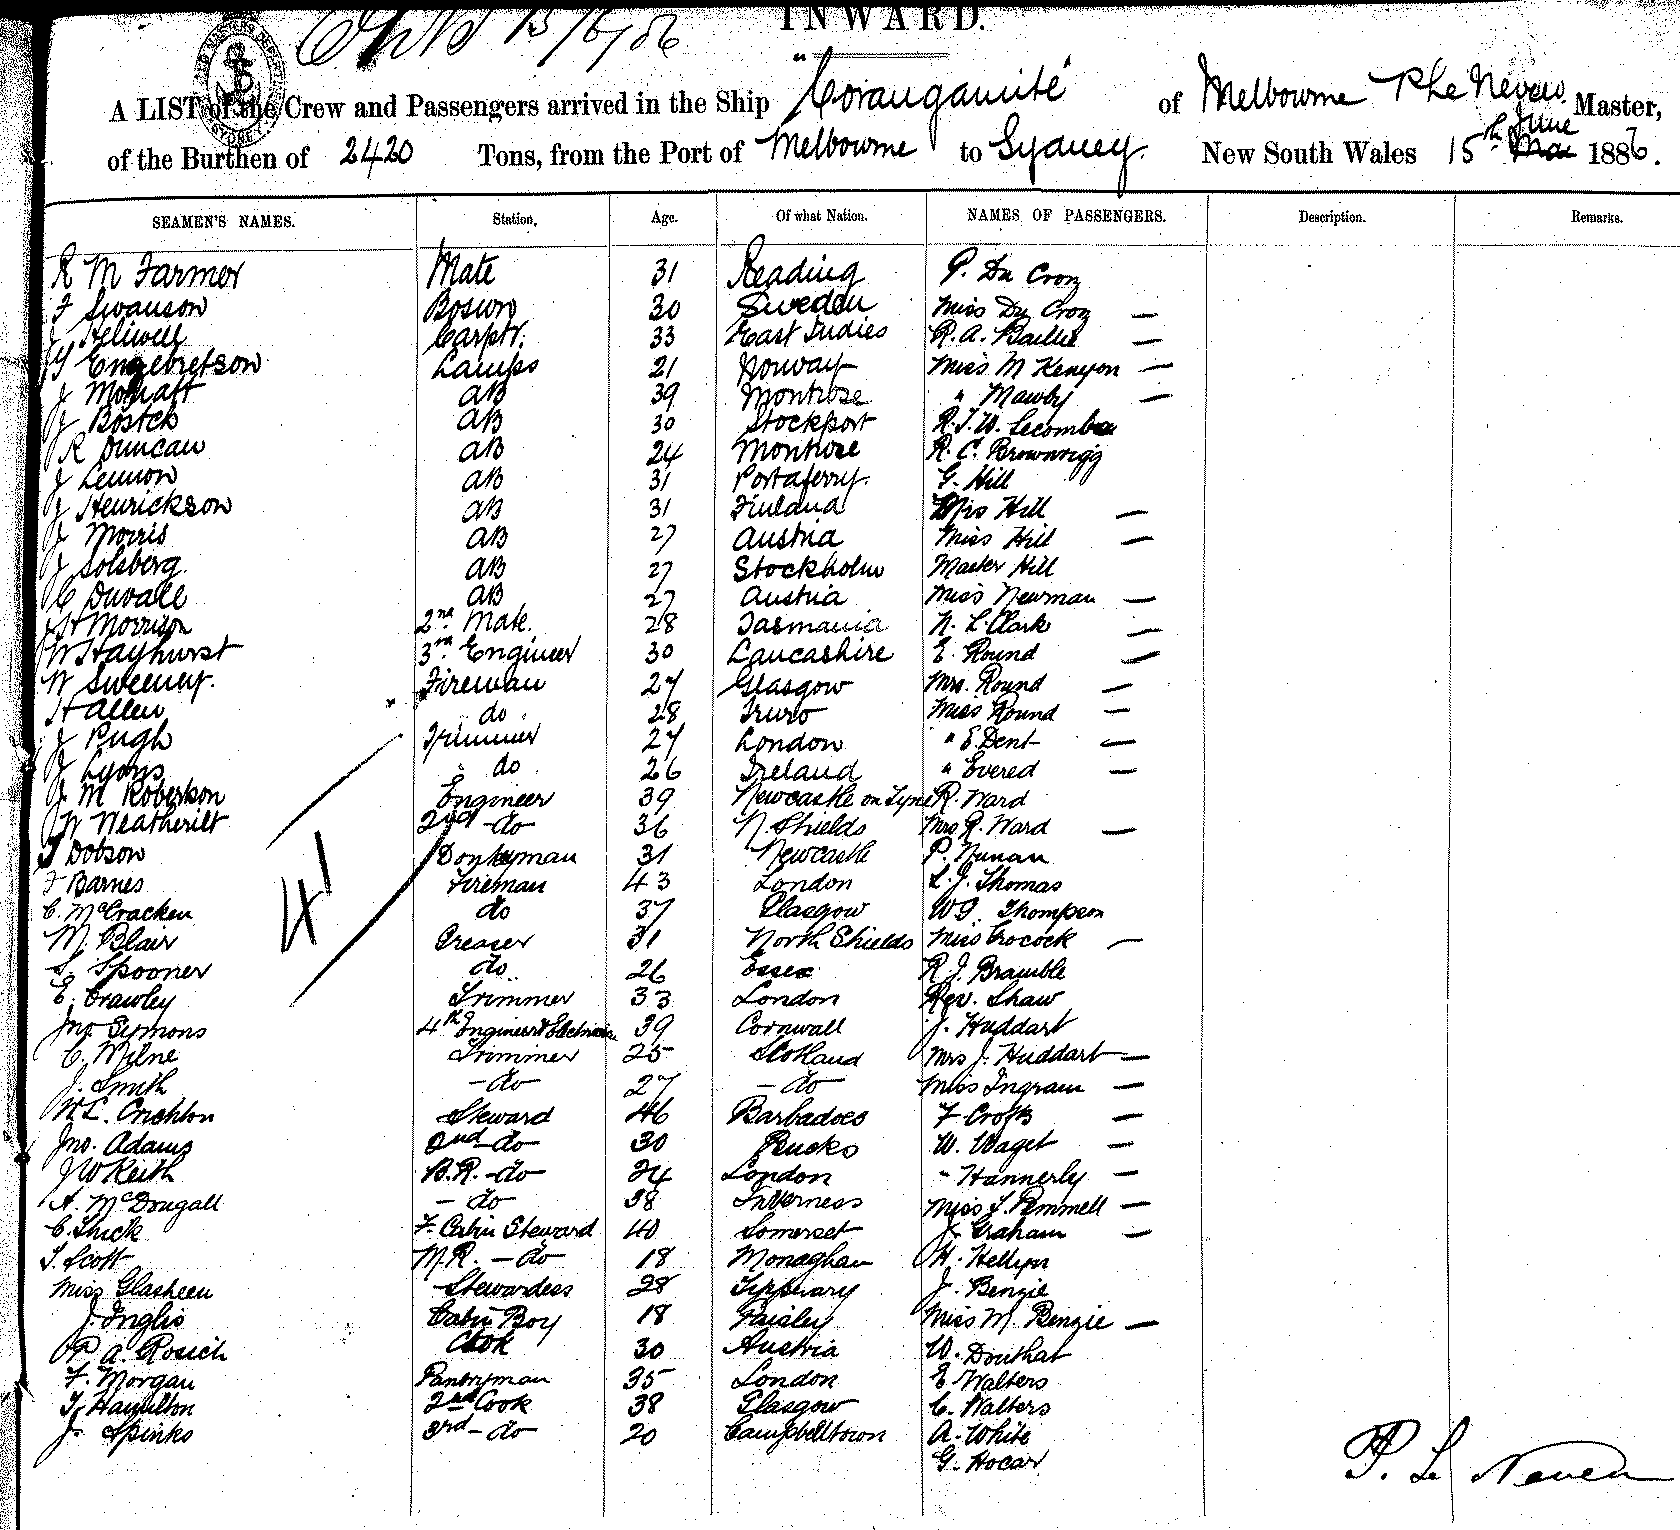 INWARD.
15/6/86
A LIST of the Crew and Passengers arrived in the Ship "Corangamite" of Melbourne P Le Neveu Master,
of the Burthen of 2420 Tons, from the Port of Melbourne to Sydney. New South Wales 15th June 1886.
SEAMEN'S NAMES. Station. Age. Of what Nation. NAMES OF PASSENGERS. Description. Remarks.
R M Farmer Mate 31 Reading P. Du Croz
F Swanson Bosun 30 Sweden Miss Du Croz —
J Heliwell Carptr. 33 East Indies R. A. Baillie —
Engebretson Lamps 21 Norway Miss M Kenyon —
J Moffatt AB 39 Montrose " Mawby —
J Bostck AB 30 Stockport R. J. W. Lecombe
R Duncan AB 24 Montrose R. C. Brownrigg
J Lennon AB 31 Portaferry. G. Hill
J Henrickson AB 31 Finland Mrs Hill —
J Morris AB 27 Austria Miss Hill —
J Solsberg. AB 27 Stockholm Master Hill
C Duvall AB 27 Austria Miss Newman —
H Morrison 2nd Mate. 28 Tasmania N. L. Clark —
W Hayhurst 3rd Engineer 30 Lancashire E. Round —
W Sweeney. Fireman 27 Glasgow Mrs. Round —
H Allen do 28 Truro Miss Round —
J Pugh Trimmer 27 London " E Dent —
J Lyons do 26 Ireland " Evered —
J. M Roberson Engineer 39 Newcastle on Tyne R. Ward
W Weatherilt 2nd - do 36 N. Shields Mrs R. Ward —
T Dobson Donkeyman 31 Newcastle P. Nunan
F Barnes Fireman 43 London L. J. Thomas
C. McCracken do 37 Glasgow W G. Thompson
M. Blair Greaser 31 North Shields Miss Crocock —
S. Spooner do 26 Essex R. J. Bramble
E. Crawley Trimmer 33 London Rev. Shaw
Jno. Symons 4th Engineer & Electrician 39 Cornwall J. Huddart
C. Milne Trimmer 25 Scotland Mrs J. Huddart —
J. Smith - do 27 - do Miss Ingram —
W. L. Crichton Steward 46 Barbadoes F Crofts —
Jno. Adams 2nd - do 30 Bucks W. Waget —
J W Keith B.R. - do 24 London " Hannerly —
A. McDougall - do 38 Inverness Miss L. Pemmell —
C. Shick F. Cabin Steward 40 Somerset J. Graham —
T. Scott M.R. - do 18 Monaghan H. Hellyn
Miss Glasheen Stewardess 28 Tipperary J. Benzie
J. Inglis Cabin Boy 18 Paisley Miss M. Benzie —
P. A. Rosich Cook 30 Austria W. Douthat
F. Morgan Pantryman 35 London E Walters
T. Hamilton 2nd Cook 38 Glasgow C. Walters
J. Spinks 3rd - do 20 Campbelltown A. White
G. Hocar
P. Le Neveu